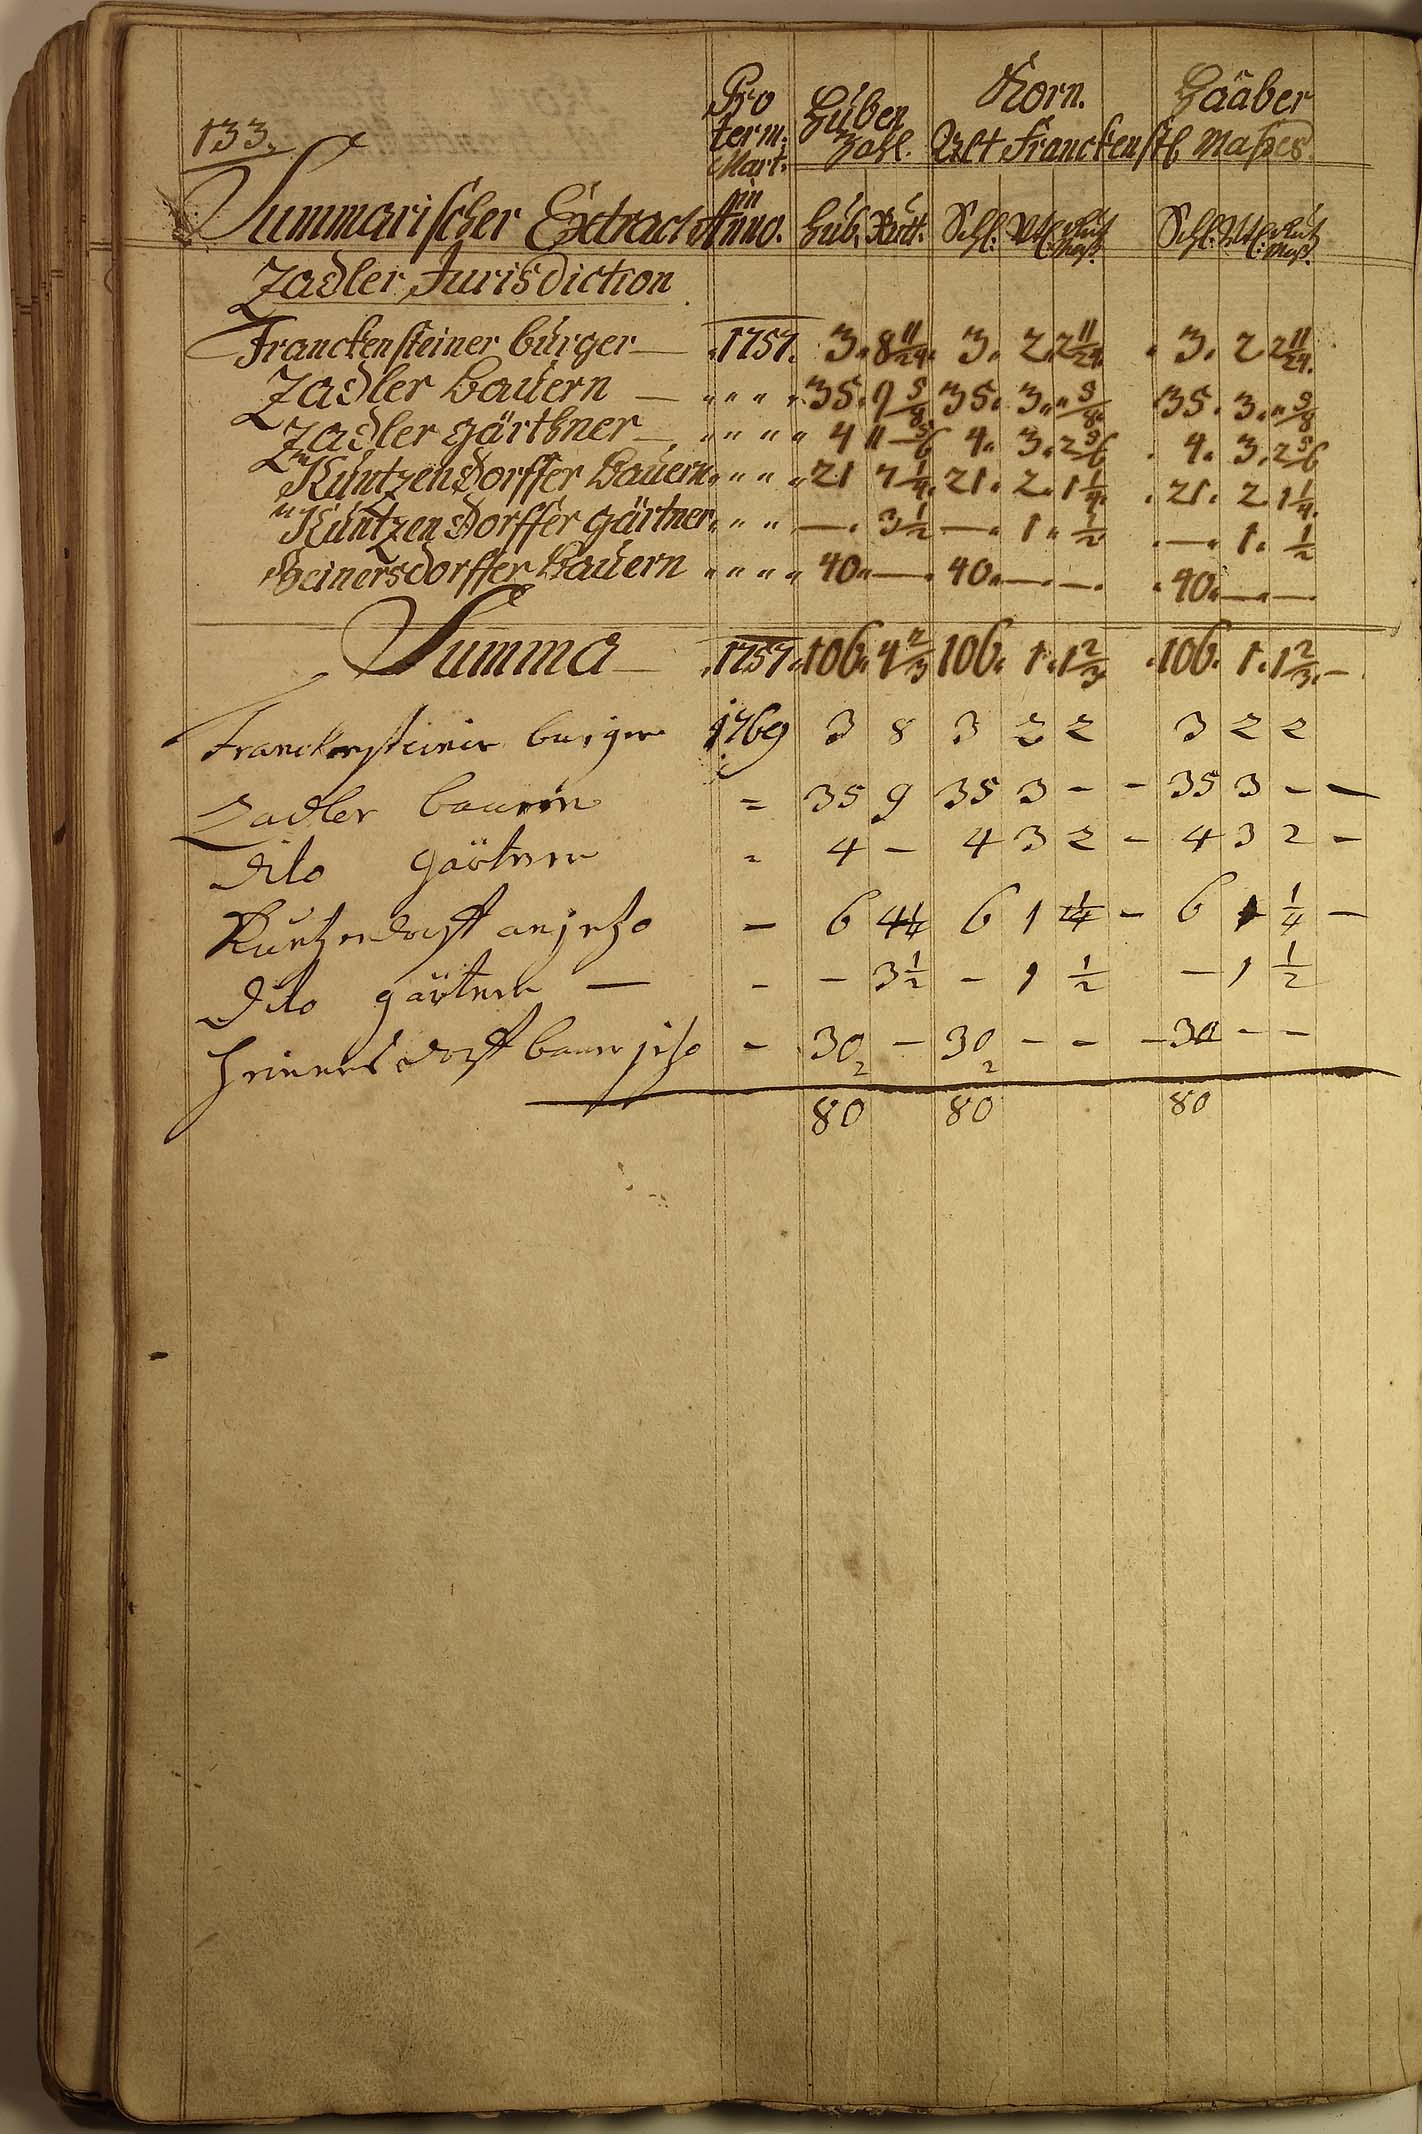 133.
Pro term: Mart: in Anno.
Huben Zahl.
Korn. Haaber
Alt Franckenstl. Maßes
Summarischer Extract
Hub. Rutt. Schl: Vtl. Maß. Schl: Vtl. Maß.
Zadler Jurisdiction
Franckensteiner burger — 1757. 3. 8 11/24. 3. 2. 2 11/24. 3. 2 2 11/24.
Zadler bauern — " " " " 35. 9 5/8 35. 3. " 5/8. 35. 3. " 5/8
Zadler gärthner — " " " " 4 11 — 5/6 4. 3. 2 5/6 4. 3. 2 5/6
Kuntzendorffer bauern " " " " 21 7 1/4. 21. 2. 1 1/4. 21. 2 1 1/4.
Kuntzendorffer gärtner " " " — . 3 1/2 — . 1 . 1/2 — . 1 . 1/2
Heinersdorffer bauern " " " " 40. — . 40. — . — . 40. — . —
Summa — 1757. 106. 4 2/3 106. 1. 1 2/3 106. 1. 1 2/3. —
Franckensteiner burger 1769 3 8 3 2 2 3 2 2
Zadler bauern = 35 9 35 3 - - 35 3 - -
dito gärtner = 4 - 4 3 2 - 4 3 2 -
Kuntzendorff anjetzo - 6 4 1/4 6 1 1/4 - 6 1 1/4 -
dito gärtner — - - 3 1/2 - 1 1/2 - 1 1/2
Heinersdorff bauer jetzo - 30 - 30 - - - 30 - -
2 2
80 80 80